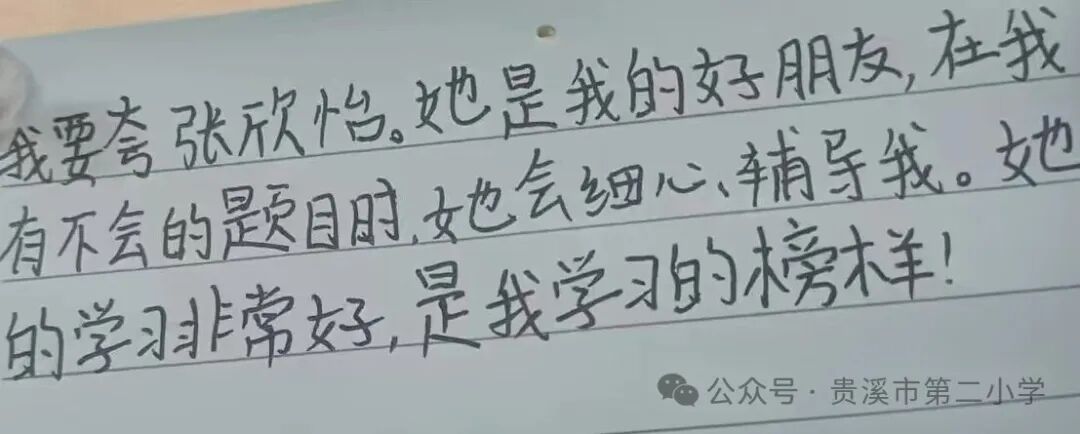 我要夸张欣怡。她是我的好朋友,在我
有不会的题目时,她会细心、辅导我。她
的学习非常好,是我学习的榜样!
公众号·贵溪市第二小学